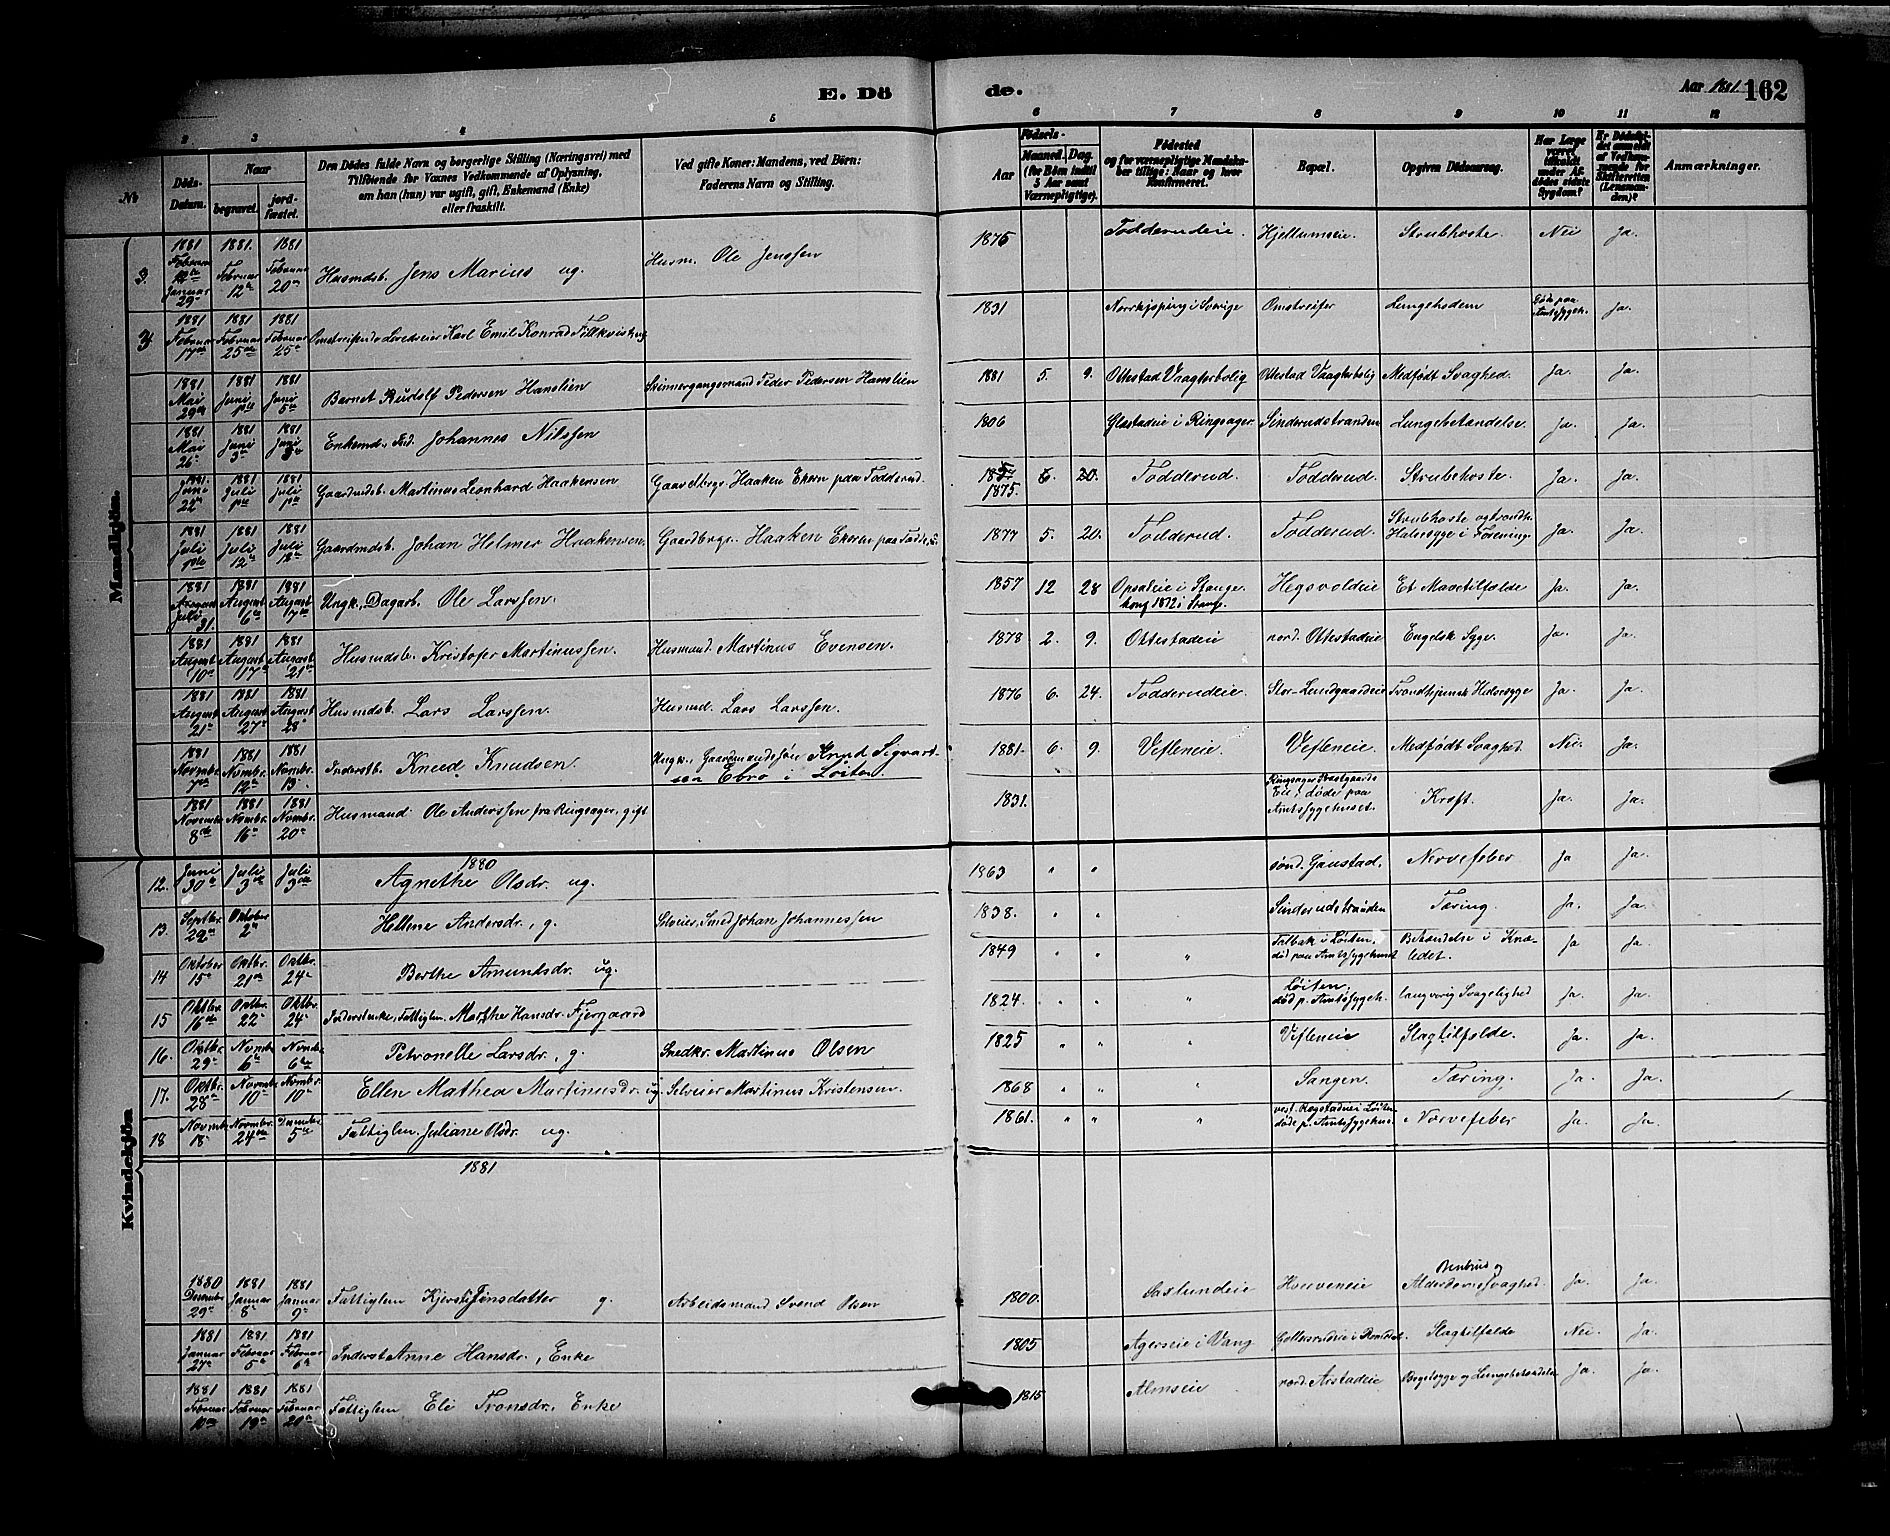 E. Dö de. Aar 1881. 162
2 3 4 5 6 7 8 9 10 11 12
№
Döds-Datum.
Naar
begravet.
jord-fæstet.
Den Dödes fulde Navn og borgerlige Stilling (Næringsvei) med
Tilföiende for Voxnes Vedkommende af Oplysning,
om han (hun) var ugift, gift, Enkemand (Enke)
eller fraskilt.
Ved gifte Koner: Mandens, ved Børn:
Faderens Navn og Stilling.
Födsels-
Aar
Maaned. Dag.
(for Börn indtil
5 Aar samt
Værnepligtige).
Födested
og for værnepligtige Mandskaber tillige: Naar og hvor
konfirmeret.
Bopæl.
Opgiven Dödsaarsag.
Har Læge
været
tilkaldt
under Afdödes sidste
Sygdom?
Er Dödsfaldet anmeldt
af Vedkommende for
Skifteretten
(Lensmanden)?
Anmærkninger.
Mandkjön.
3. 1881 Januar 29 1881. Februar 12te 1881 Februar 20de Husmdsb. Jens Marius ug. Husm. Ole Jenssen 1875 Todderudeie. Hjellumseie. Strubhoste. Nei Ja.
4 1881 Februar 17de 1881 Februar 25de 1881 Februar 25 Omstreifende Karl Emil Konrad 1831 Norrkjøping i Sverige Omstreifer Lungeødem Døde paa Amtssygeh. Ja.
1881 Mai 29de 1881 Juni 1ste 1881 Juni 5te Barnet Rudolf Pedersen Hanslien Skinnergangermand Peder Pedersen Hanslien 1881 5. 9. Ottestad Vaagterbolig Ottestad Vaagterbolig Medfödt Svaghed. Ja. Ja.
1881 Mai 26 1881 Juni 3 1881 Juni Enkemd. Johannes Nilssen 1806 i Ringsager. Sinderudstranden Lungebetændelse. Ja. Ja.
1881 Juni 22 1881 Juli 1ste 1881 Juli 1ste Gaardmdsb. Martinus Leonhard Haakensen Gaardbrgr. Haaken Ekern paa Todderud. 1875. 6. 20. Todderud. Todderud. Strubehoste. Ja. Ja.
1881 Juli 1881 Juli 12 1881 Juli 12te Gaardmdsb. Johan Helmer Haakensen. Gaardbrgr. Haaken Ekern paa 1877 5. 20. Todderud. Todderud. Strubhoste og trondh. Halssyge i Forening. Ja. Ja.
1881 Juli 31. 1881 August 6te 1881 August 7de Ungk., Dagarb. Ole Larssen. 1857 12 28 Opsadeie i Stange konf 1872 i Stange. Hegsvoldeie Et Mavetilfælde Ja. Ja.
1881 August 10de 1881 August 17de 1881 August 21de Husmdsb. Kristofer Martinussen. Husmand. Martinus Evensen. 1878 2. 9. Ottestadeie nord. Ottestadeie Engelsk Syge. Ja. Ja.
1881 August 21de 1881 August 27de 1881 August 28de Husmdsb. Lars Larssen. Husmd. Lars Larssen. 1876 6. 24. Todderudeie. Stor-Lundgaardeie Trondhjemsk Halssyge Ja. Ja.
1881 Novmbr. 7de 1881 Nvmbr. 12te 1881 Novmbr. 13. Inderstb. Knud Knudsen. Ungk. Gaardmandssön Knud Sigvartsen Ebro i Löiten. 1881- 6. 9. Vefleneie. Vefleneie. Medfödt Svaghed. Nei. Ja.
1881 Novembr. 8de 1881 Novmbr. 16 1881 Novmbr. 20 Husmand Ole Anderssen fra Ringsager, gift 1831. Ringsager Eie, döde paa Amtssygehuset. Kræft. Ja. Ja.
Kvindekjön
1880
12. Juni 30te Juli 3de Juli 3de Agnethe Olsdr. ug. 1863 " " sönd. Gaustad. Nervefeber Ja Ja.
13. Septbr. 29de Oktober 2 Hellene Andersdr., g. Selveier, Smed Johan Johannessen 1838. " " Sinderudstranden Tæring. Ja. Ja.
14 Oktober 15 Oktbr. 21de Oktbr. 24 Berthe Amundsdr. ug. 1849 " " " i Löiten, död paa Amtssygehuset Betændelse i Knæledet. Ja Ja.
15 Oktbr. 16de Oktbr. 22 Oktbr. 24 Inderstenke, Fattiglem. Marthe Hansdr. Fjergaard 1824. " " " Löiten, död p. Amtssygeh. langvarig Svagelighed Ja. Ja.
16. Oktbr. 29 Novmbr. 6te Novmbr. 6te Petronelle Larsdr., g. Snedkr. Martinus Olsen 1825 " " Vefleneie Slagtilfælde. Ja. Ja.
17. Oktbr. 28de Novmbr. 10 Novmbr. 10 Ellen Mathea Martinusdr. ug Selveier Martinus Kristensen. 1868 " " " Sangen. Tæring. Ja. Ja.
18 Novmbr. 18 Novmbr. 24de Decmbr. 5te Fattiglem. Juliane Olsdr. ug. 1861. " " " vest. i Löiten, döde p. Amtssygehus. Nervefeber Ja. Ja.
1881
1880 Decembr 29 1881 Januar 8 1881 Januar 9 Fattiglem Kjersti Jensdatter g. Arbeidsmand Svend Olsen 1800. Saslundeie Hoerveneie Benbrud og Alderdomssvaghed. Ja. Ja.
1881 Januar 27 1881 Februar 5 1881 Februar 6 Inderst Anne Hansdr., Enke 1805 Agerseie i Vang i Romedal. Slagtilfælde Nei. Ja.
1881 Februar 10de 1881 Februar 19 1881 Februar 20 Fattiglem Eli Tronsdr. Enke 1815 Almseie nord. Arstadeie og Lungebetændelse Ja. Ja.